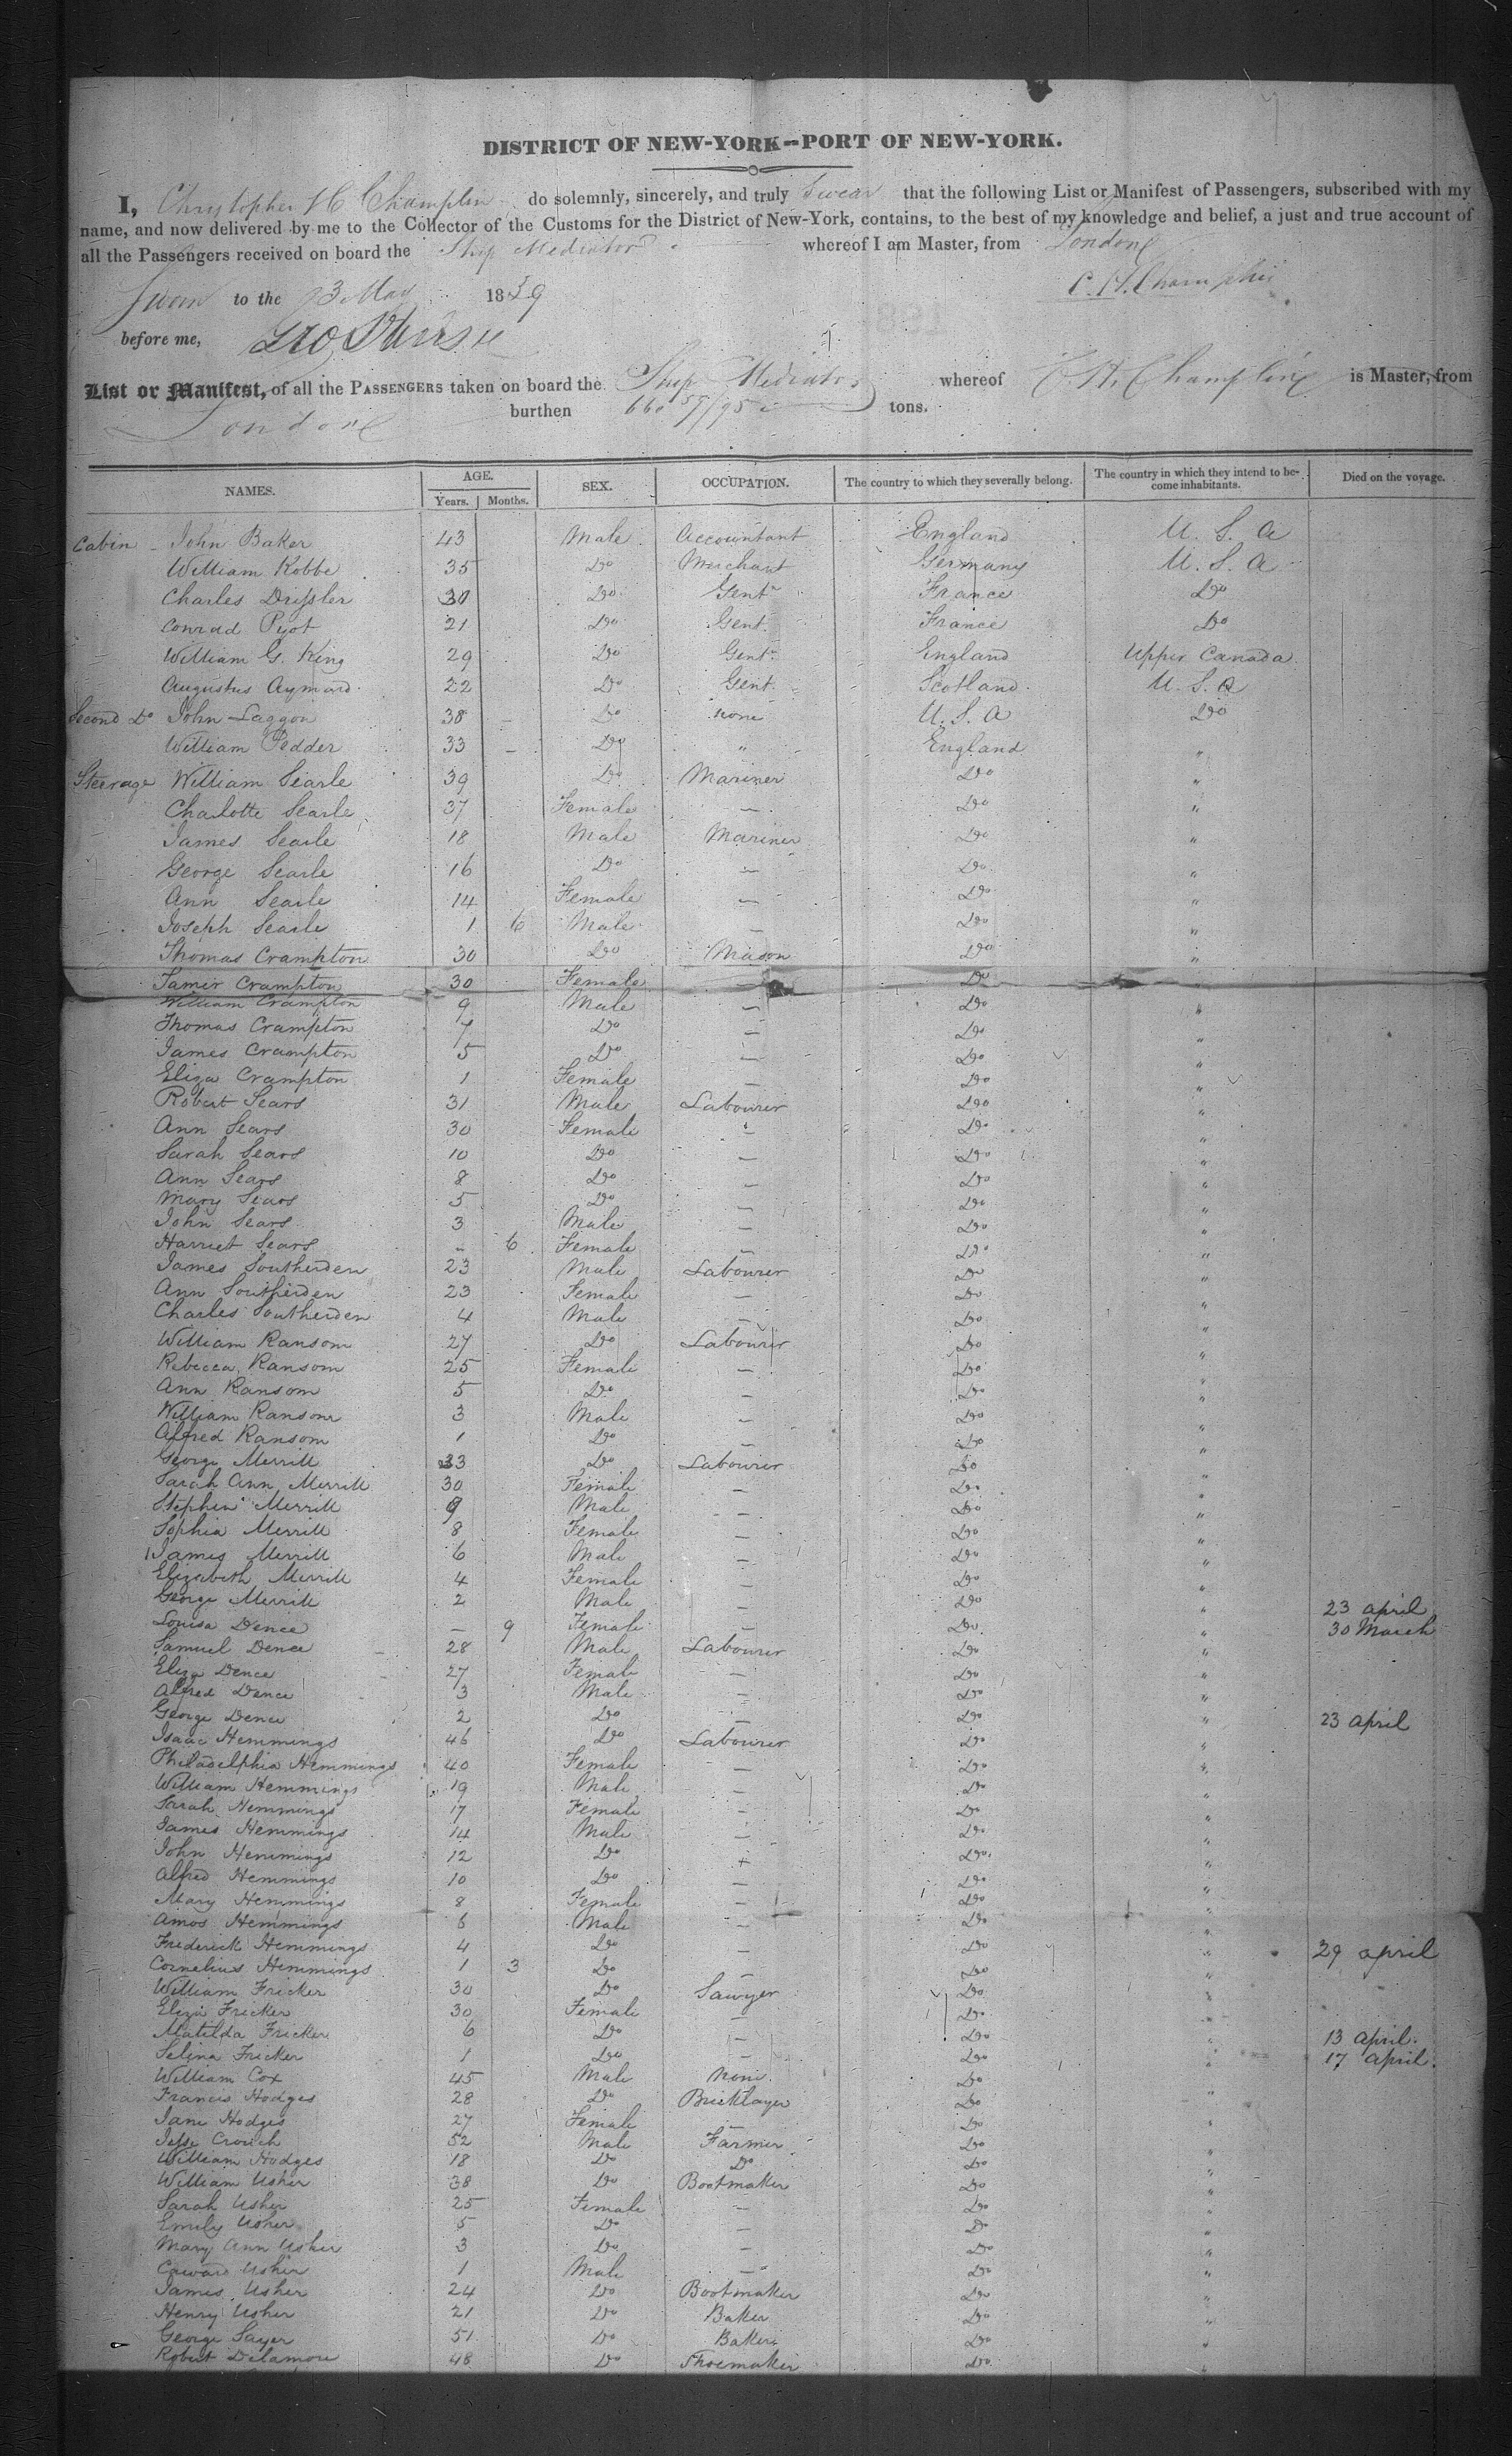 DISTRICT OF NEW-YORK—PORT OF NEW-YORK.
I, Christopher H Champlin do solemnly, sincerely, and truly Swear that the following List or Manifest of Passengers, subscribed with my
name, and now delivered by me to the Collector of the Customs for the District of New-York, contains, to the best of my knowledge and belief, a just and true account of
all the Passengers received on board the Ship Mediator whereof I am Master, from London
Sworn to the 23 May 1839 C. H. Champlin
before me, Geo
List or Manifest, of all the PASSENGERS taken on board the Ship Mediator whereof C H Champlin is Master, from
London burthen 660 59/95 tons.
NAMES. AGE. Years. Months. SEX. OCCUPATION. The country to which they severally belong. The country in which they intend to become inhabitants. Died on the voyage.
Cabin John Baker 43 Male Accountant England U. S. A
William Kobbe 35 Do Merchant Germany U. S. A
Charles Drissler 30 Do Gent France Do
Conrad Pyot 21 Do Gent. France Do
William G. King 29 Do Gent. England Upper Canada
Augustus Aymard 22 Do Gent. Scotland U. S. A
Second Do John Laggon 38 – Do none U. S. A Do
William Pedder 33 – Do " England "
Steerage William Searle 39 Do Mariner Do "
Charlotte Searle 37 Female – Do "
James Searle 18 Male Mariner Do "
George Searle 16 Do – Do "
Ann Searle 14 Female – Do "
Joseph Searle 1 6 Male – Do "
Thomas Crampton 30 Do Mason Do "
Tamir Crampton 30 Female – Do "
William Crampton 9 Male – Do "
Thomas Crampton 7 Do – Do "
James Crampton 5 Do – Do "
Eliza Crampton 1 Female – Do "
Robert Sears 31 Male Labourer Do "
Ann Sears 30 Female – Do "
Sarah Sears 10 Do – Do "
Ann Sears 8 Do – Do "
Mary Sears 5 Do – Do "
John Sears 3 Male – Do "
Harriet Sears – 6 Female – Do "
James Southerden 23 Male Labourer Do "
Ann Southerden 23 Female – Do "
Charles Southerden 4 Male – Do "
William Ransom 27 Do Labourer Do "
Rebecca Ransom 25 Female – Do "
Ann Ransom 5 Do – Do "
William Ransom 3 Male – Do "
Alfred Ransom 1 Do – Do "
George Merritt 33 Do Labourer Do "
Sarah Ann Merritt 30 Female – Do "
Stephen Merritt 9 Male – Do "
Sophia Merritt 8 Female – Do "
James Merritt 6 Male – Do "
Elizabeth Merritt 4 Female – Do "
George Merritt 2 Male – Do " 23 April
Louisa Dence – 9 Female – Do " 30 March
Samuel Dence 28 Male Labourer Do "
Eliza Dence 27 Female – Do "
Alfred Dence 3 Male – Do "
George Dence 2 Do – Do " 23 April
Isaac Hemmings 46 Do Labourer Do "
Philadelphia Hemmings 40 Female – Do "
William Hemmings 19 Male – Do "
Sarah Hemmings 17 Female – Do "
James Hemmings 14 Male – Do "
John Hemmings 12 Do + Do "
Alfred Hemmings 10 Do – Do "
Mary Hemmings 8 Female – Do "
Amos Hemmings 6 Male – Do "
Frederick Hemmings 4 Do – Do " 29 April
Cornelius Hemmings 1 3 Do – Do "
William Fricker 30 Do Sawyer Do "
Eliza Fricker 30 Female – Do "
Matilda Fricker 6 Do – Do " 13 April.
Selina Fricker 1 Do – Do " 17 April.
William Cox 45 Male None Do "
Francis Hodges 28 Do Bricklayer Do "
Jane Hodges 27 Female – Do "
Jesse Crouch 52 Male Farmer Do "
William Hodges 18 Do Do Do "
William Usher 38 Do Bootmaker Do "
Sarah Usher 25 Female – Do "
Emily Usher 5 Do – Do "
Mary Ann Usher 3 Do – Do "
Edward Usher 1 Male – Do "
James Usher 24 Do Bootmaker Do "
Henry Usher 21 Do Baker Do "
George Sayer 51 Do Baker Do "
Robert Delamore 48 Do Shoemaker Do "